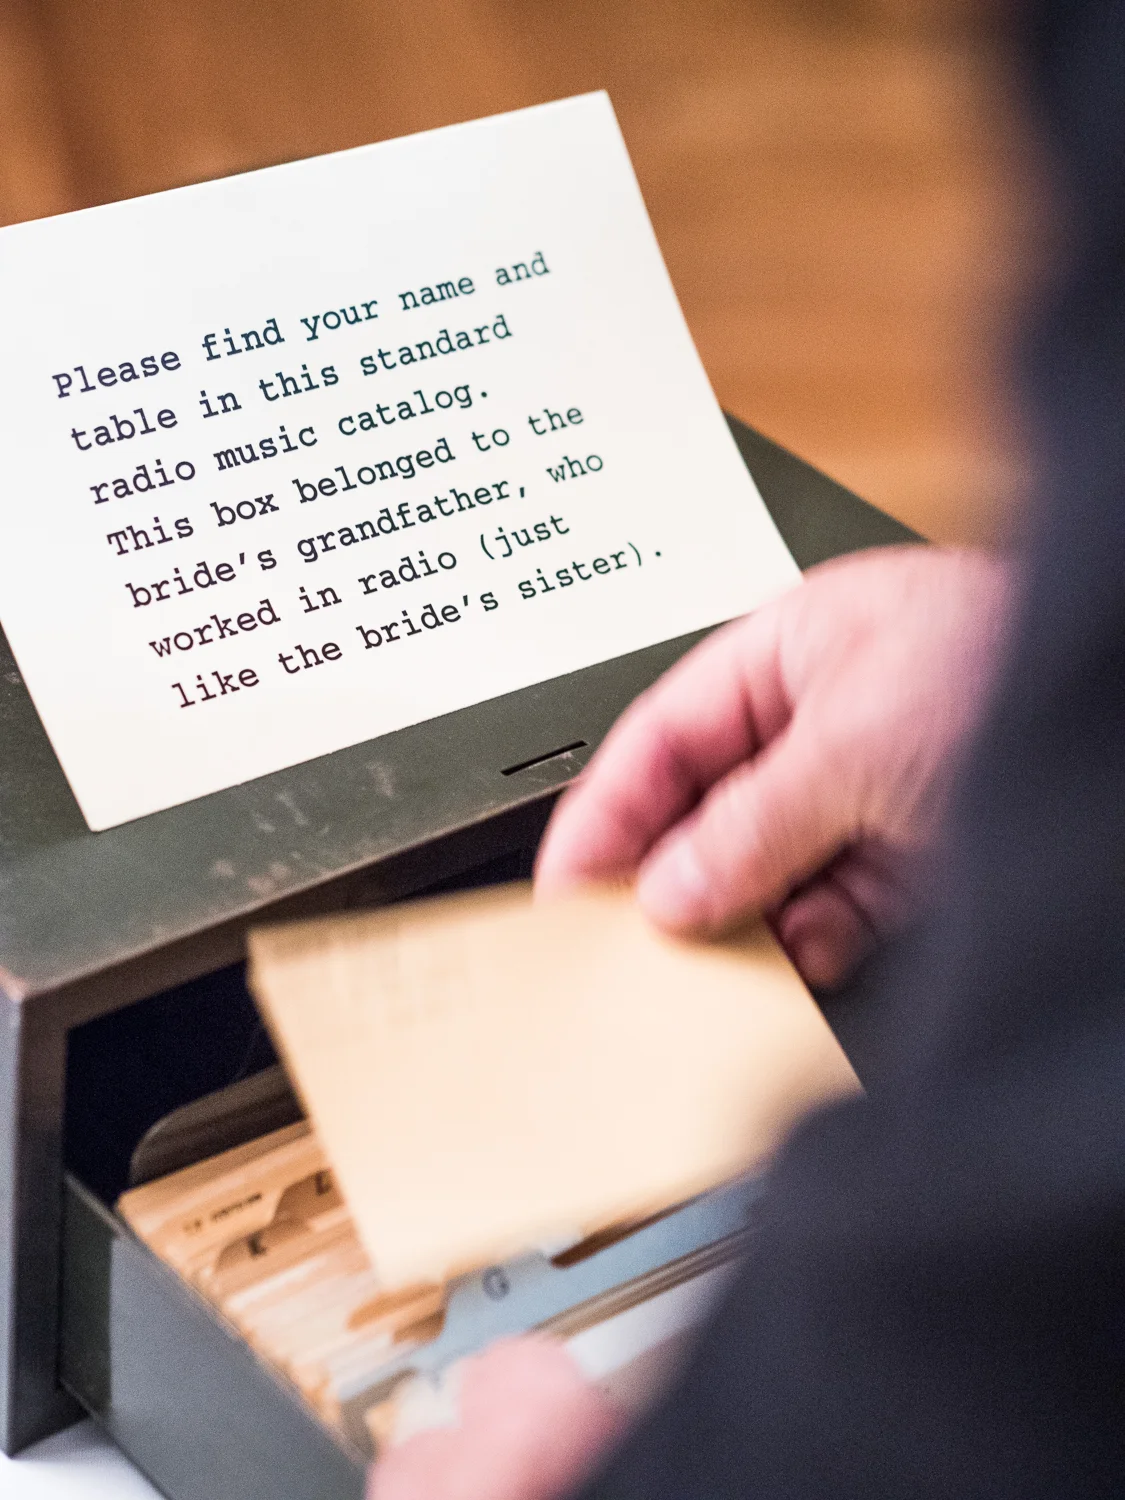 Please find your name and
table in this standard
radio music catalog.
This box belonged to the
bride's grandfather, who
worked in radio (just
like the bride's sister).
K
G